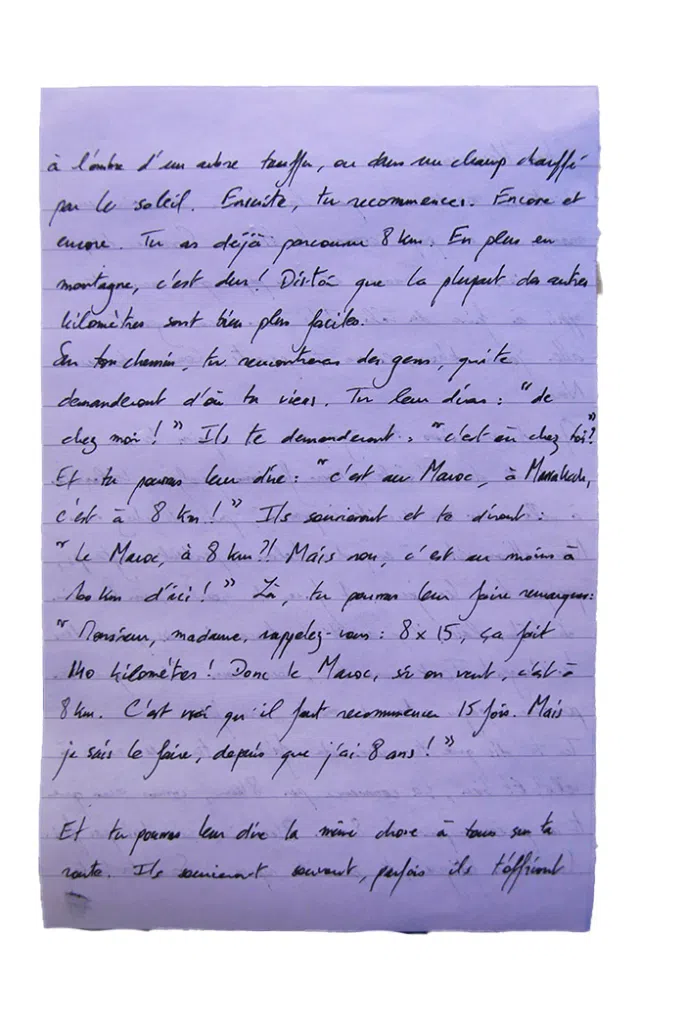 à l'ombre d'un arbre touffu, ou dans un champ chauffé
par le soleil. Ensuite, tu recommences. Encore et
encore. Tu as déjà parcouru 8 km. En plus en
montagne, c'est dur ! Dis-toi que la plupart des autres
kilomètres sont bien plus faciles.
Sur ton chemin, tu rencontreras des gens, qui te
demanderont d'où tu viens. Tu leur diras : "de
chez moi ! " Ils te demanderont : "c'est où chez toi?"
Et tu pourras leur dire : "c'est au Maroc, à Marrakech,
c'est à 8 km ! " Ils souriront et te diront :
"Le Maroc, à 8 km?! Mais non, c'est au moins à
100 km d'ici ! " Là, tu pourras leur faire remarquer :
"Monsieur, madame, rappelez-vous : 8 x 15, ça fait
140 kilomètres ! Donc le Maroc, si on veut, c'est à
8 km. C'est vrai qu'il faut recommencer 15 fois. Mais
je sais le faire, depuis que j'ai 8 ans ! "
Et tu pourras leur dire la même chose à tous sur ta
route. Ils souriront souvent, parfois ils t'offriront